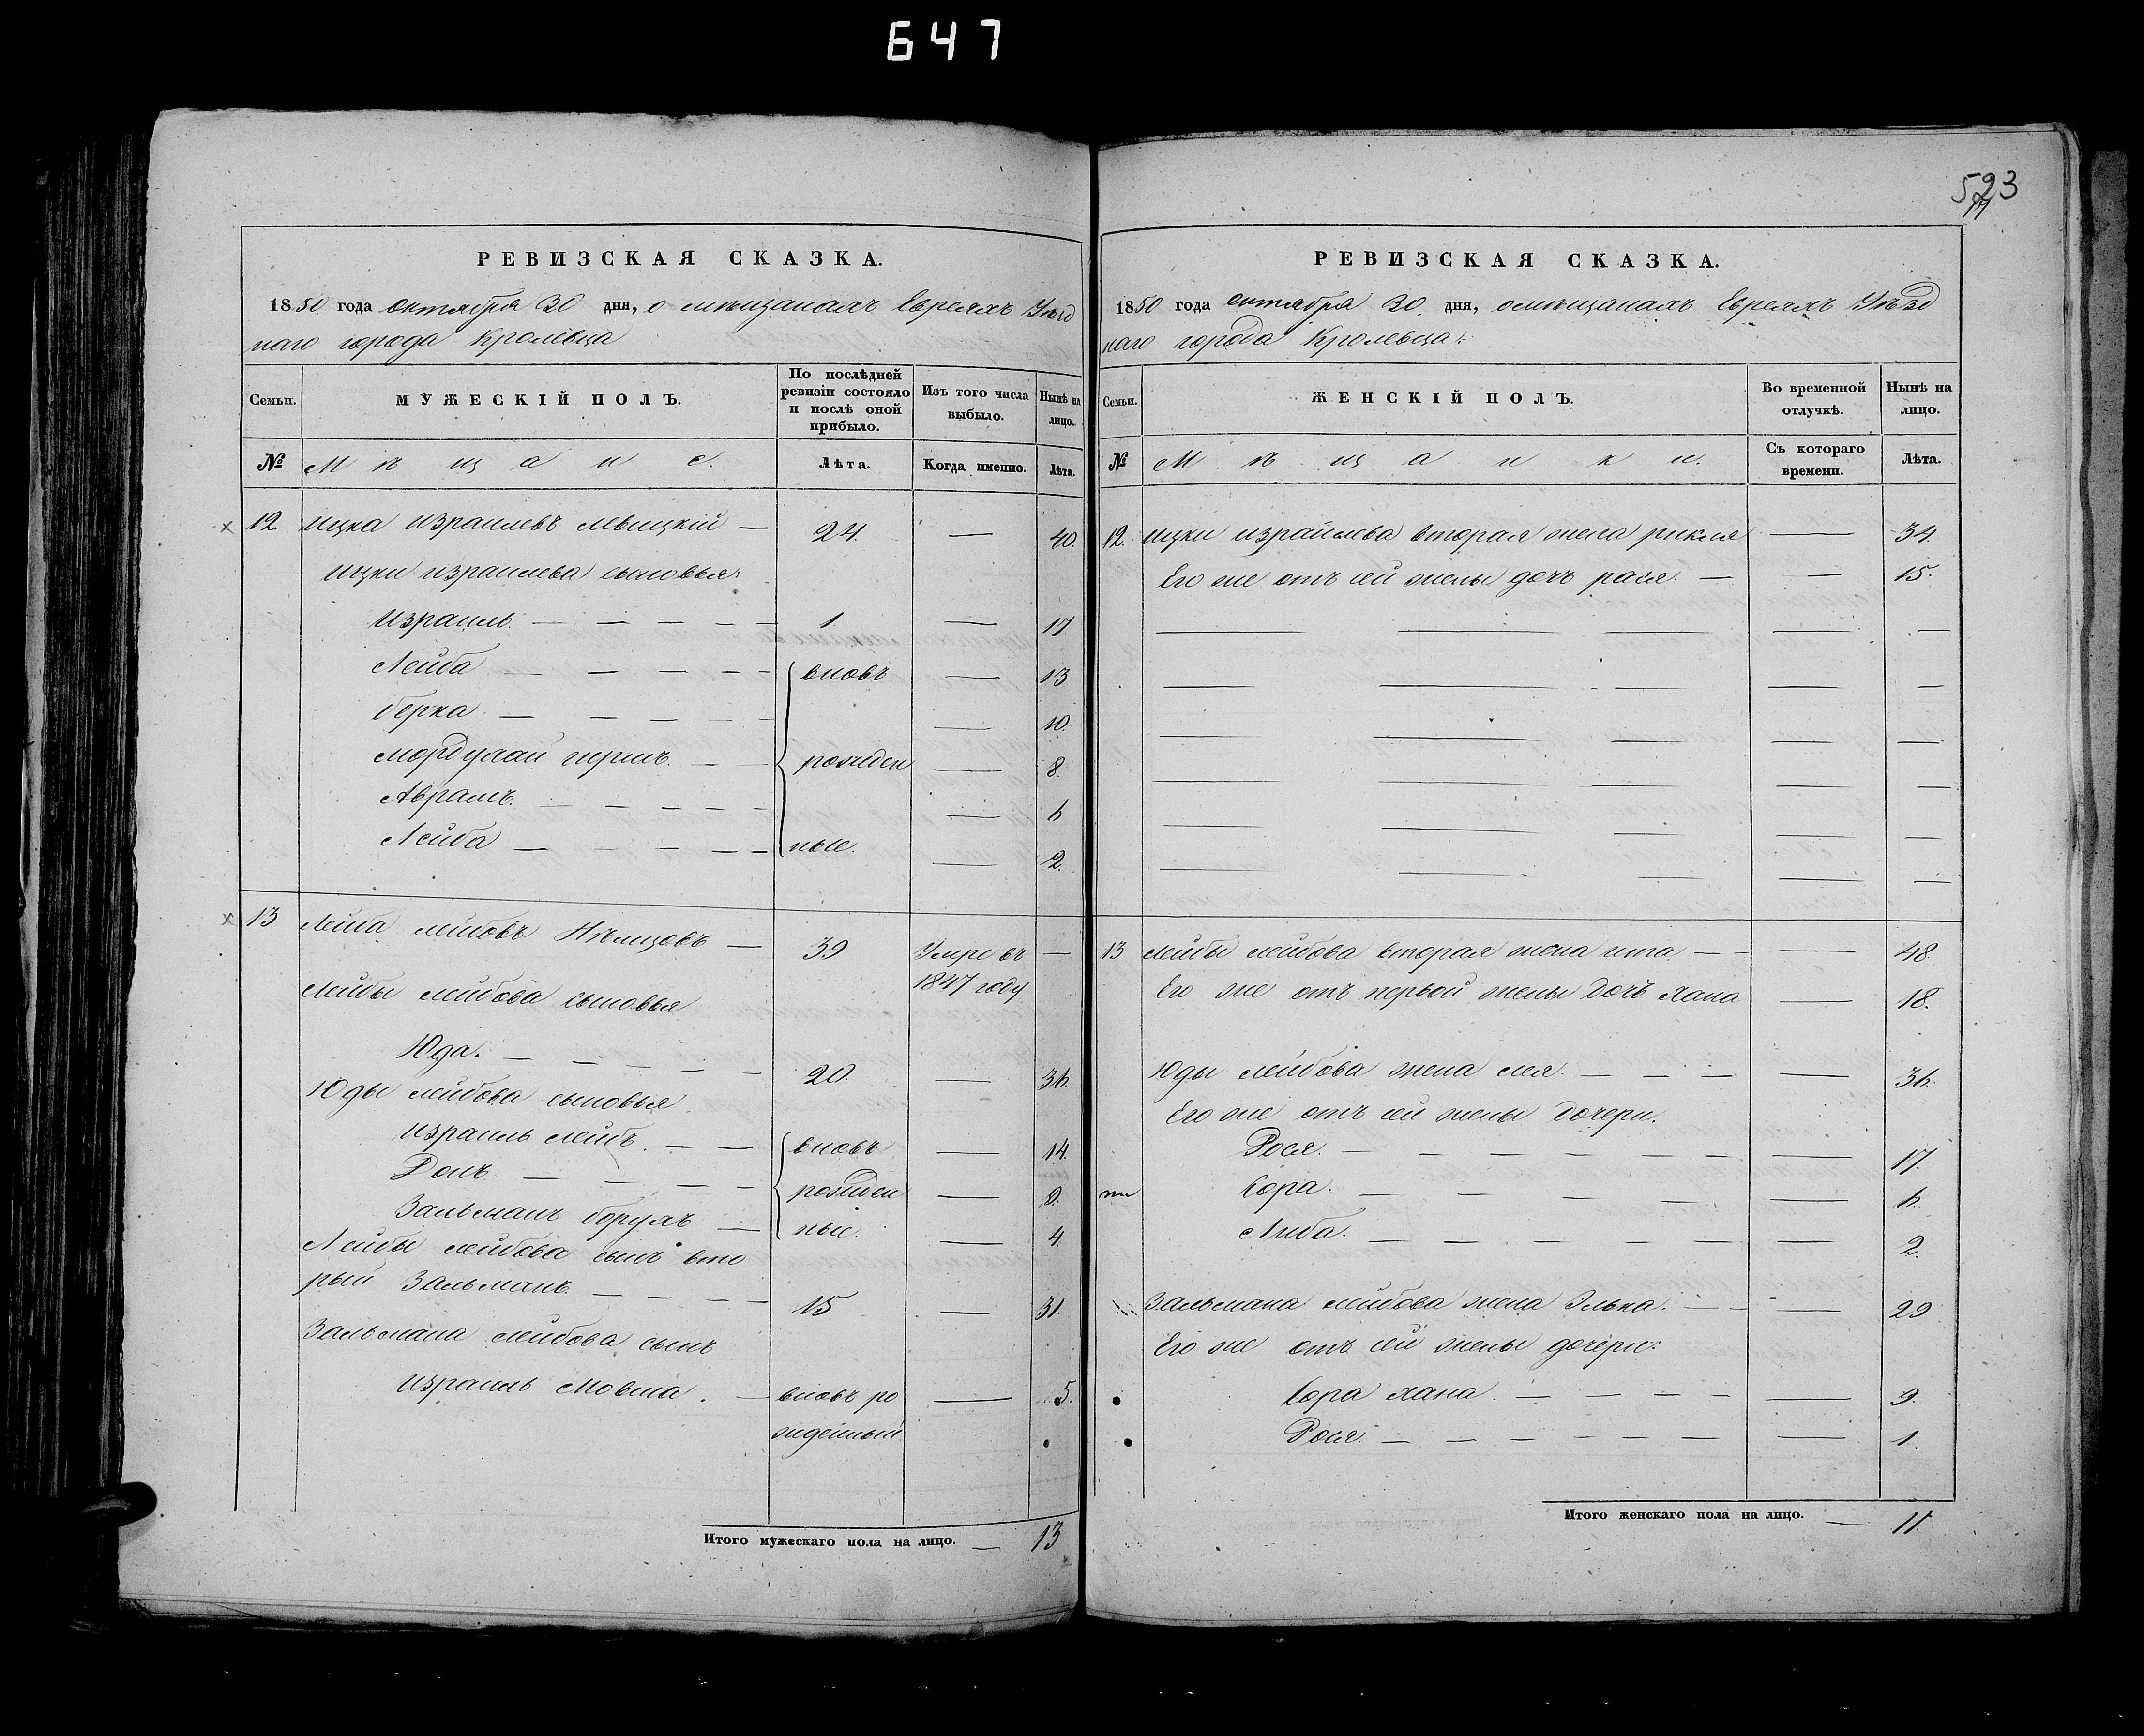 647
523
РЕВИЗСКАЯ СКАЗКА.
1850 года октября 30 дня, о мѣщанахъ Евреяхъ Уѣзд
наго города Кролевца
Семьи.
МУЖЕСКІЙ ПОЛЪ.
По послѣдней ревизіи состояло и послѣ оной прибыло.
Изъ того числа выбыло.
Нынѣ на лицо.
№ Мѣщане. Лѣта. Когда именно. Лѣта.
12 Ицка Израилевъ Левицкій — 24. — 40.
Ицки Израилева сыновья:
Израиль — 1 — 17.
Лейба — вновь — 13
Берка — — 10.
Мордухай гершъ — рожден — 8.
Аврамъ — — 6
Лейба — ные. — 2.
13 Лейба лейбовъ Нѣмцовъ — 39 Умре въ —
1847 году
Лейбы лейбова сыновья
Юда. — 20. — 36.
Юды лейбова сыновья
Израиль лейбъ. — вновь — 14.
— рожден —
Зальманъ борухъ — ные. — 4.
Лейбы лейбова сынъ вто
рый Зальманъ — 15 — 31.
Зальмана лейбова сынъ
Израиль Мовша. — вновь ро — 5.
жденный
Итого мужескаго пола на лицо. — 13
РЕВИЗСКАЯ СКАЗКА.
1850 года октября 30. дня, о мѣщанахъ Евреяхъ Уѣзд
наго города Кролевца.
Семьи.
ЖЕНСКІЙ ПОЛЪ.
Во временной отлучкѣ.
Нынѣ на лицо.
№ Мѣщанки. Съ котораго времени. Лѣта.
12. Ицки израйлева вторая жена рикля — 34.
Его же отъ сей жены дочь рася. — 15.
13 лейбы лейбова вторая жена ита — 48
Его же отъ первой жены дочь хана — 18.
Юды лейбова жена лея. — 36.
Его же отъ сей жены дочери.
Рося. — 17.
Сора. — 6.
Либа. — 2.
Зальмана лейбова жена Элька. — 29
Его же отъ сей жены дочери:
Сора хана — 9.
Рося. — 1.
Итого женскаго пола на лицо. — 11.